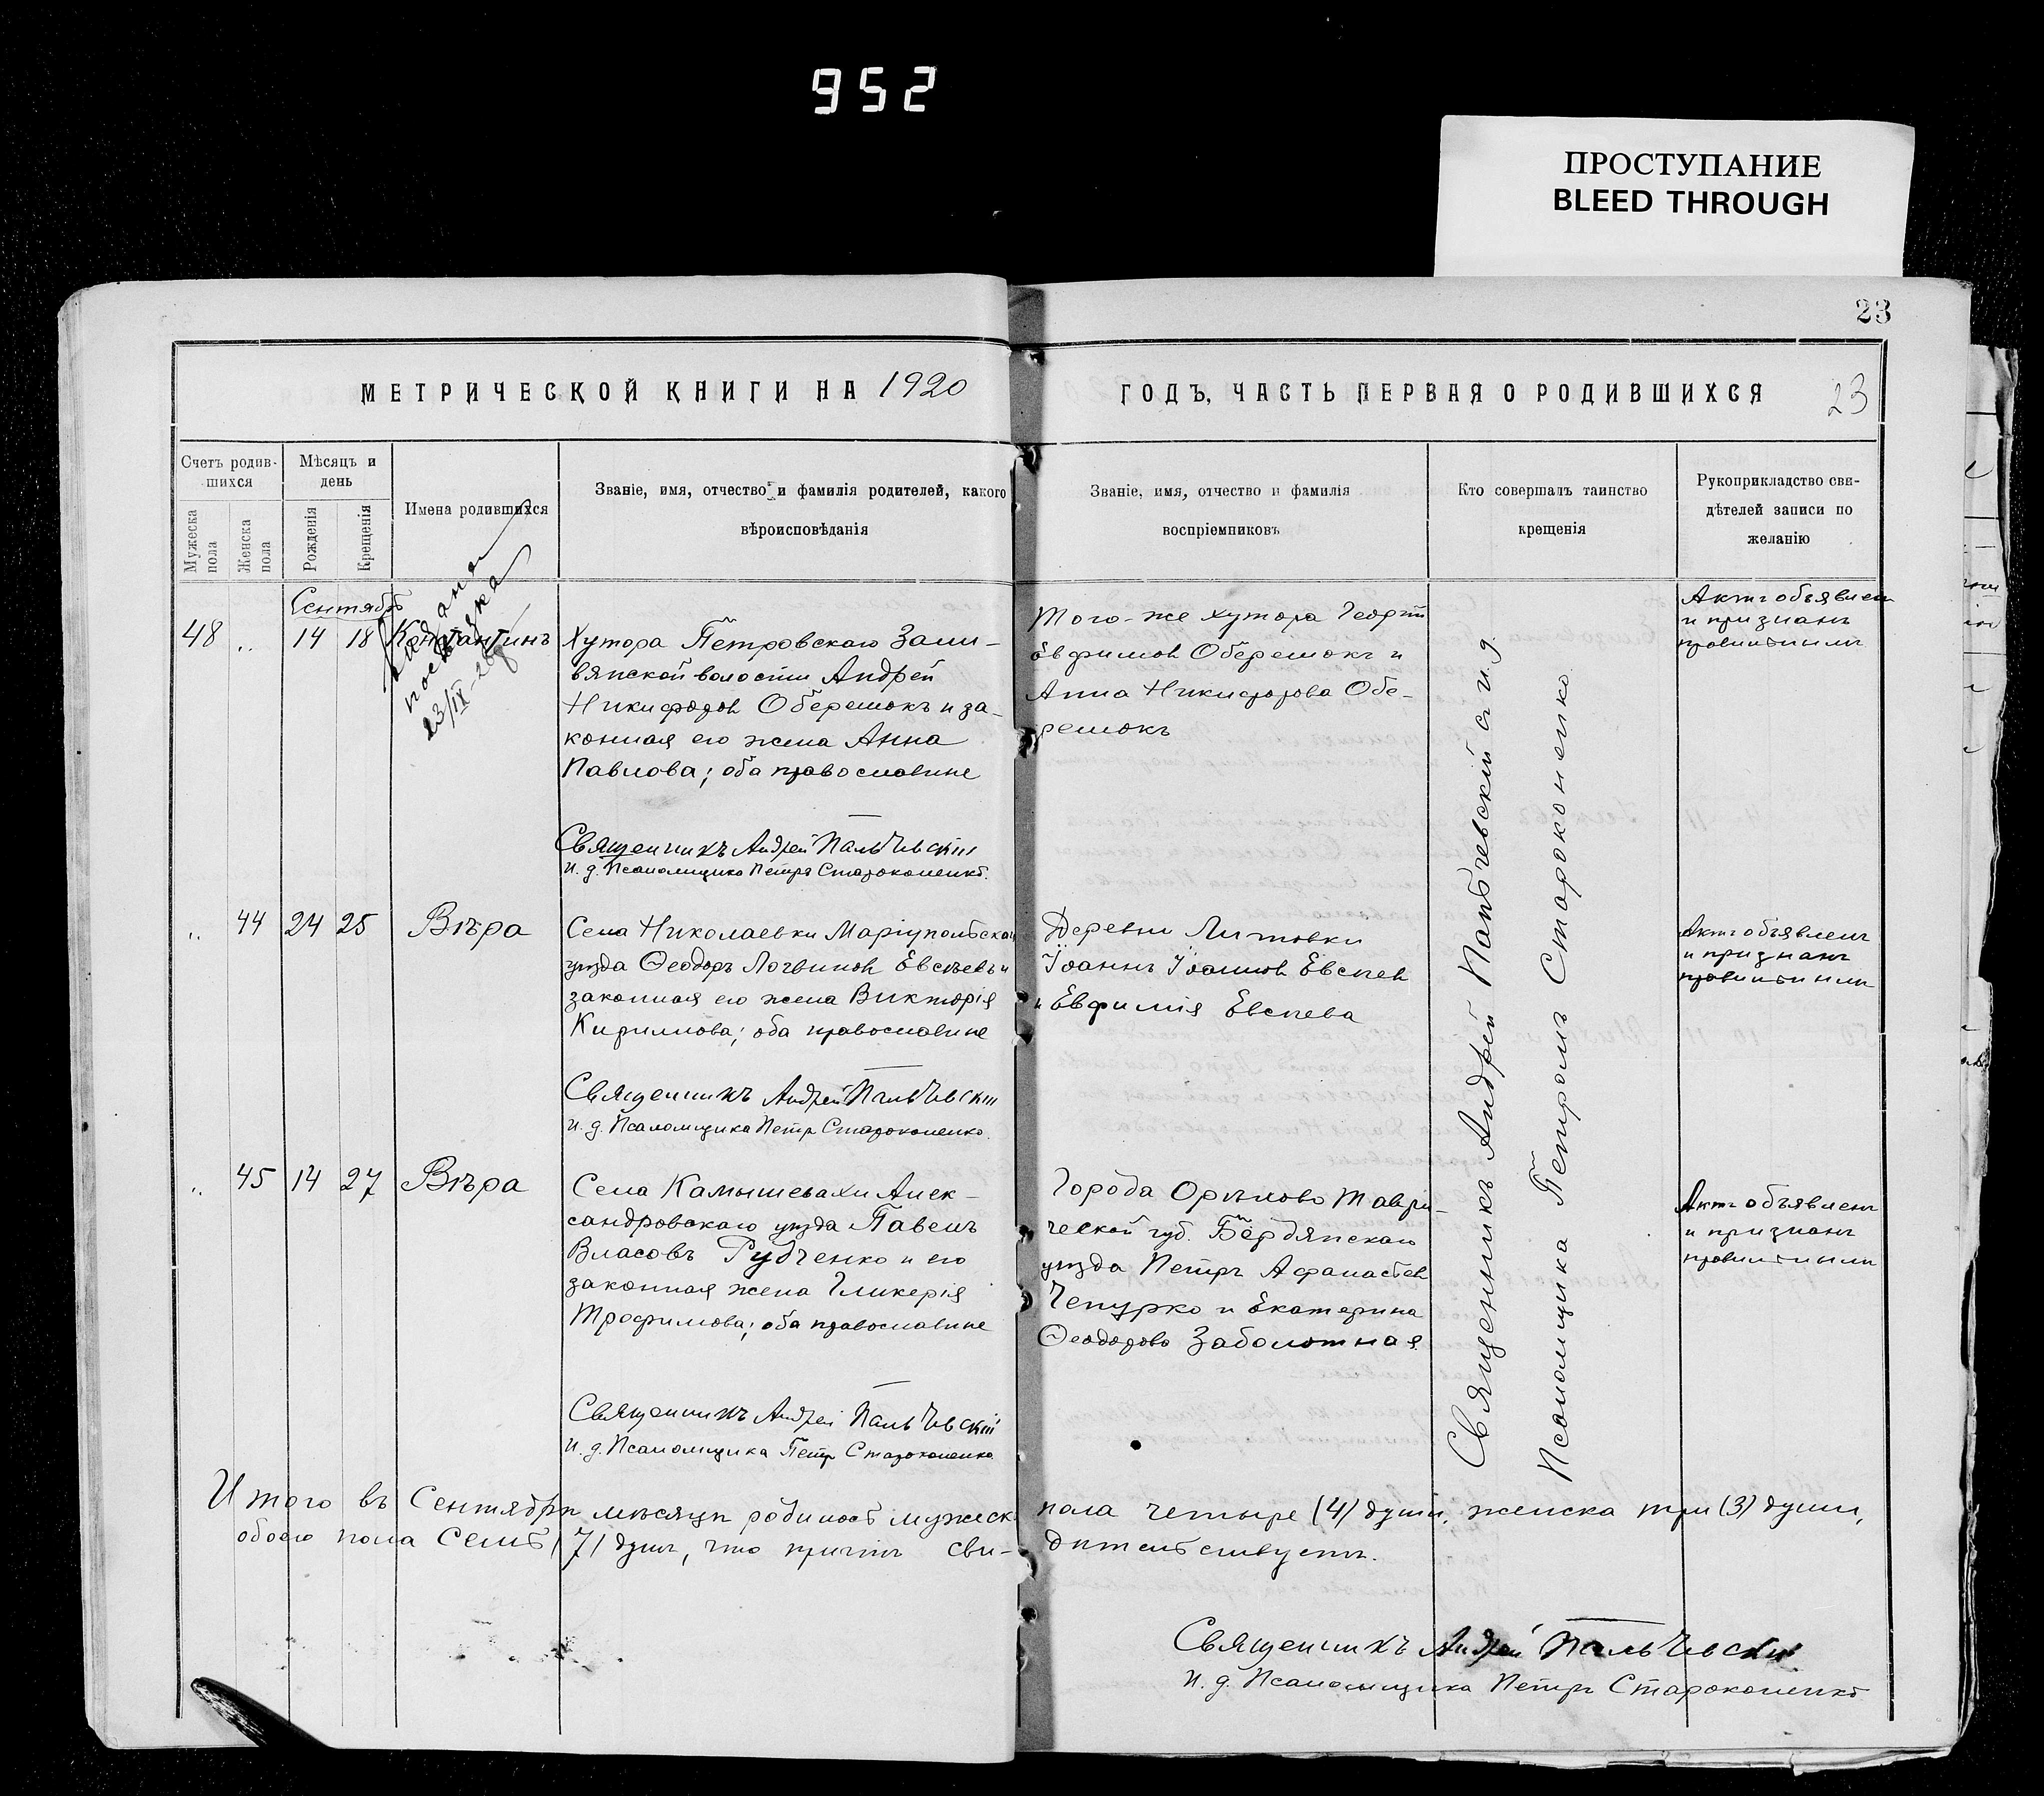 952
ПРОСТУПАНИЕ
BLEED THROUGH
23
МЕТРИЧЕСКОЙ КНИГИ НА 1920
ГОДЪ, ЧАСТЬ ПЕРВАЯ О РОДИВШИХСЯ
23
Счетъ родив-
шихся
Мужеска пола
Женска пола
Мѣсяцъ и
день
Рожденія
Крещенія
Имена родившихся
Званіе, имя, отчество и фамилія родителей, какого
вѣроисповѣданія
Званіе, имя, отчество и фамилія
воспріемниковъ
Кто совершалъ таинство
крещенія
Рукоприкладство сви-
дѣтелей записи по
желанію
Сентябрь
48 „ 14 18 Константинъ
23/IX-28
Хутора Петровскаго Зали-
вянской волости Андрей
Никифоровъ Оберемокъ и за-
конная его жена Анна
Павлова; оба православные
Священникъ Андрей Пальчевскій
и. д. Псаломщика Петръ Староконенко.
Того-же хутора Георгій
Евфимовъ Оберемокъ и
Анна Никифорова Обе-
ремокъ
Актъ объявленъ
и признанъ
правильнымъ
„ 44 24 25 Вѣра
Села Николаевки Маріупольскаго
уѣзда Ѳеодоръ Логвиновъ Евсѣевъ и
законная его жена Викторія
Кириллова; оба православные
Священникъ Андрей Пальчевскій
и. д. Псаломщика Петръ Староконенко.
Деревни Литовки
Іоаннъ Іоанновъ Евсѣевъ
и Евфимія Евсѣева
Актъ объявленъ
и признанъ
правильнымъ
„ 45 14 27 Вѣра
Села Камышевахи Алек-
сандровскаго уѣзда Павелъ
Власовъ Рудченко и его
законная жена Гликерія
Трофимова; оба православные
Священникъ Андрей Пальчевскій
и. д. Псаломщика Петръ Староконенко.
Города Орѣхова Таври-
ческой губ. Бердянскаго
уѣзда Петръ Афанасьевъ
Чепурко и Екатерина
Ѳеодорова Заболотная
Актъ объявленъ
и признанъ
правильнымъ
Священникъ Андрей Пальчевскій съ и. д.
Псаломщика Петромъ Староконенко
Итого въ Сентябрѣ мѣсяцѣ родилось мужеск. пола четыре (4) души, женска три (3) души,
обоего пола семь (7) душъ, что причтъ сви- дѣтельствуетъ.
Священникъ Андрей Пальчевскій
и. д. Псаломщика Петръ Староконенко